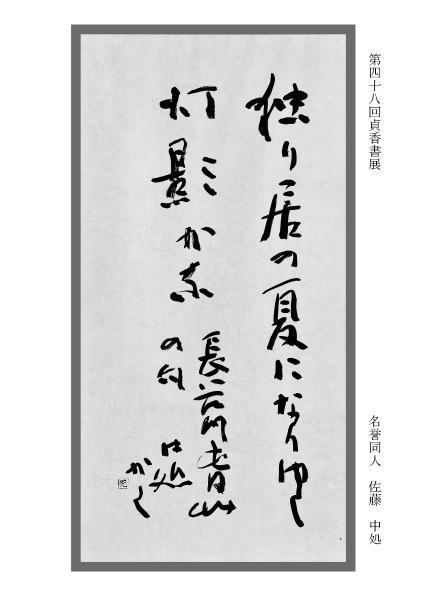 第四十八回貞香書展
独り居の夏になりゆく
灯影かな
長谷川春山
の句
中処
かく
名誉同人　佐藤　中処